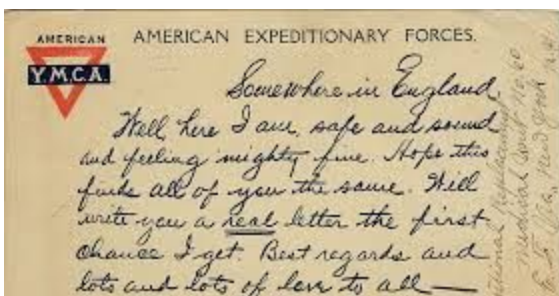 AMERICAN
Y.M.C.A.
AMERICAN EXPEDITIONARY FORCES.
Somewhere in England.
Well here I am, safe and sound
and feeling mighty fine. Hope this
finds all of you the same. Will
write you a real letter the first
chance I get. Best regards and
lots and lots of love to all—
Replacement
Medical Unit No. 60
New York